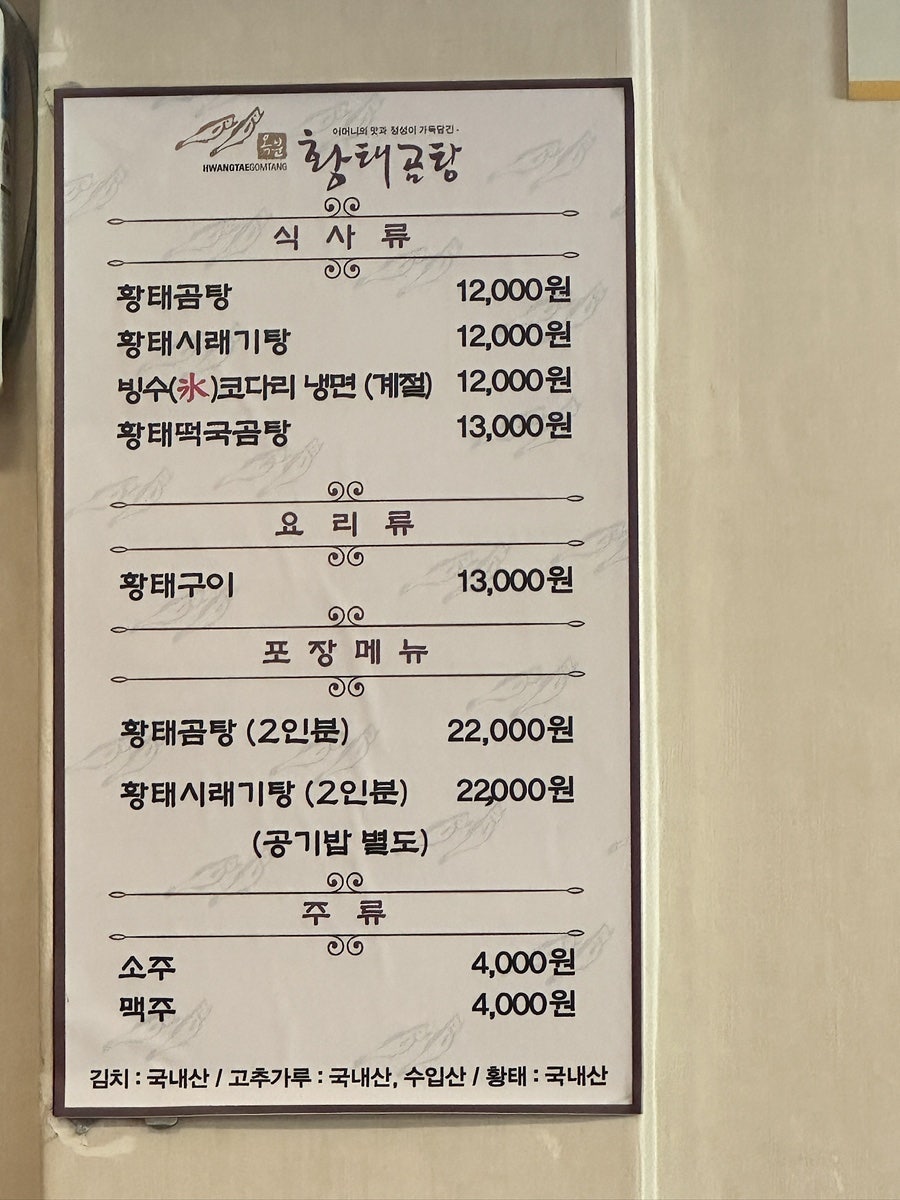 어머니의 맛과 정성이 가득담긴 -
옥분 황태곰탕
HWANGTAEGOMTANG
식 사 류
황태곰탕 12,000원
황태시래기탕 12,000원
빙수(氷)코다리 냉면 (계절) 12,000원
황태떡국곰탕 13,000원
요 리 류
황태구이 13,000원
포 장 메 뉴
황태곰탕 (2인분) 22,000원
황태시래기탕 (2인분) 22,000원
(공기밥 별도)
주 류
소주 4,000원
맥주 4,000원
김치 : 국내산 / 고추가루 : 국내산, 수입산 / 황태 : 국내산